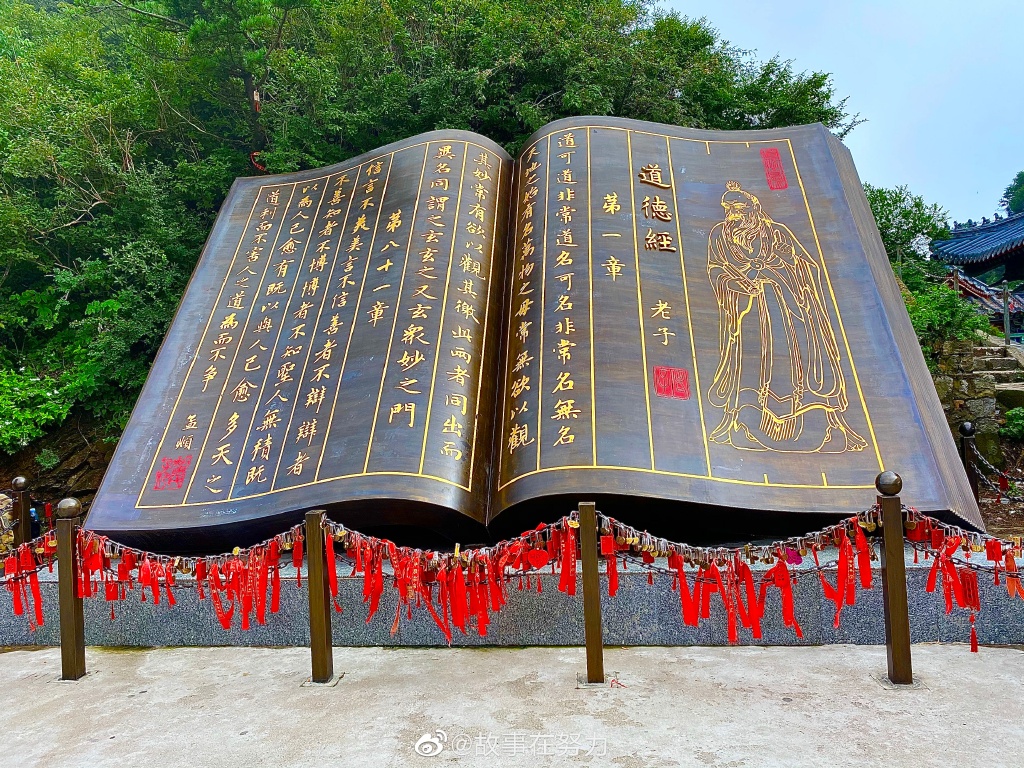 道德經 老子
第一章
道可道非常道名可名非常名無名
天地之始有名萬物之母常無欲以觀
其妙常有欲以觀其徼此兩者同出而
異名同謂之玄玄之又玄眾妙之門
第八十一章
信言不美美言不信善者不辯辯者
不善知者不博博者不知聖人無積既
以為人己愈有既以與人己愈多天之
道利而不害人之道為而不争 孟順
@故事在努力